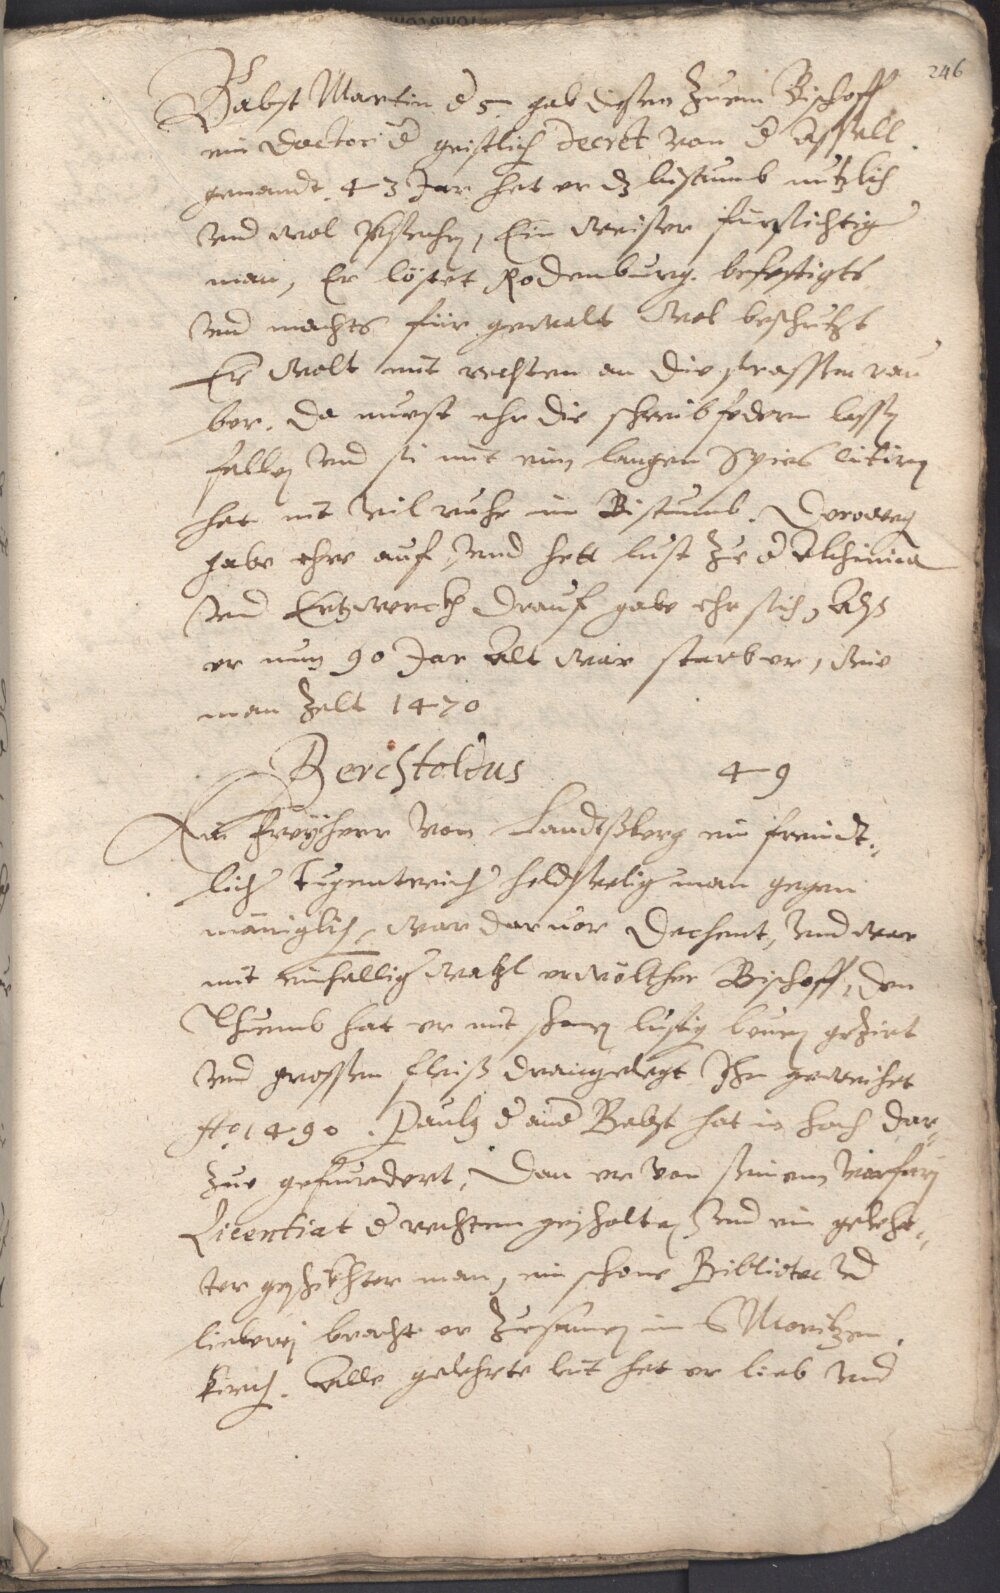 246
Babst Martin d 5 gab diesen zuem Bischoff
ein Doctor d geistlich Decret von d Assell
genandt. 43 Jar het er dz bistumb nützlich
vnd wol versehen, Ein weiser fürsichtig
man, Er löset Rodenburg. befestigts
vnd machts für gewalt wol beschutzt
Er wolt mit rechten an die strassen rau
ber. da must ehr die schreibfedern lassen
fallen vnd sie mit eim langen Spies citiren
hat nit viel ruhe im Bistumb. Deroweg
gabe ehrs auf, vnd hett lust zu d Alchimia
vnd Ertzwerckh drauf gabe ehr sich, Als
er nun 90 Jar alt war starb er, wie
man zelt 1470
Berchtoldus 49
Ein Freyherr von Landtßberg ein freindt„
lich tugentreich holdseelig man gegen
mäniglich, war darvor Dechent, vnd war
mit einhellig wahl erwölther Bischoff, den
Thuemb hat er mit schonen lustig beuen geziert
vnd grossen fleiß drangelegt Ihn geweihet
Ao 1490. Pauls d and Babst hat in hoch dar„
zue gefurdert, Dan er von seinem vorfarn
Licentiat d rechten gehalten vnd ein gelehr„
ter geschickhter man, ein schone Bibliotec vnd
lieberei bracht er zusamen in S Moritzen
kirch. Alle gelehrte leut het er lieb vnd